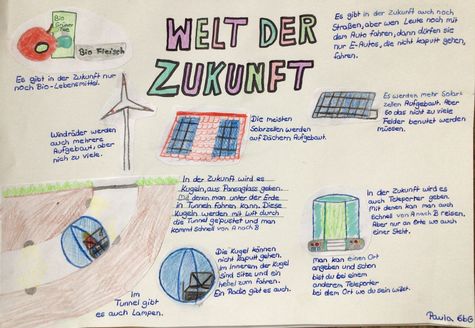 WELT DER
ZUKUNFT
Bio
Grüner
Tee
Bio Fleisch
Es gibt in der Zukunft nur
noch Bio-Lebensmittel.
Es gibt in der Zukunft auch noch
Straßen, aber wen Leute noch mit
dem Auto fahren, dann dürfen sie
nur E-Autos, die nicht kaputt gehen,
fahren.
Windräder werden
auch mehrere
Aufgebaut, aber
nich zu viele.
Die meisten
Solarzellen werden
auf Dächern Aufgebaut.
Es werden mehr Solar
zellen Aufgebaut. Aber
so das nicht zu viele
Felder benutet werden
müssen.
In der Zukunft wird es
Kugeln, aus Panzaglass geben.
Mit denen man unter der Erde
in Tunneln fahren kann. Diese
Kugeln werden mit Luft durch
die Tunnel gepustet und man
kommt schnell von A nach B
Die Kugel können
nicht Kaputt gehen.
Im Inneren der Kugel
sind Sitze und ein
hebel zum fahren.
Ein Radio gibt es auch.
Im
Tunnel gibt
es auch Lampen.
In der Zukunft wird es
auch Teleporter geben.
Mit denen kan man auch
Schnell von A nach B reisen.
Aber nur an Orte wo auch
einer Steht.
man kan einen Ort
angeben und schon
bist du bei einem
anderem Teleporter
bei dem Ort wo du sein willst.
Paula 6b